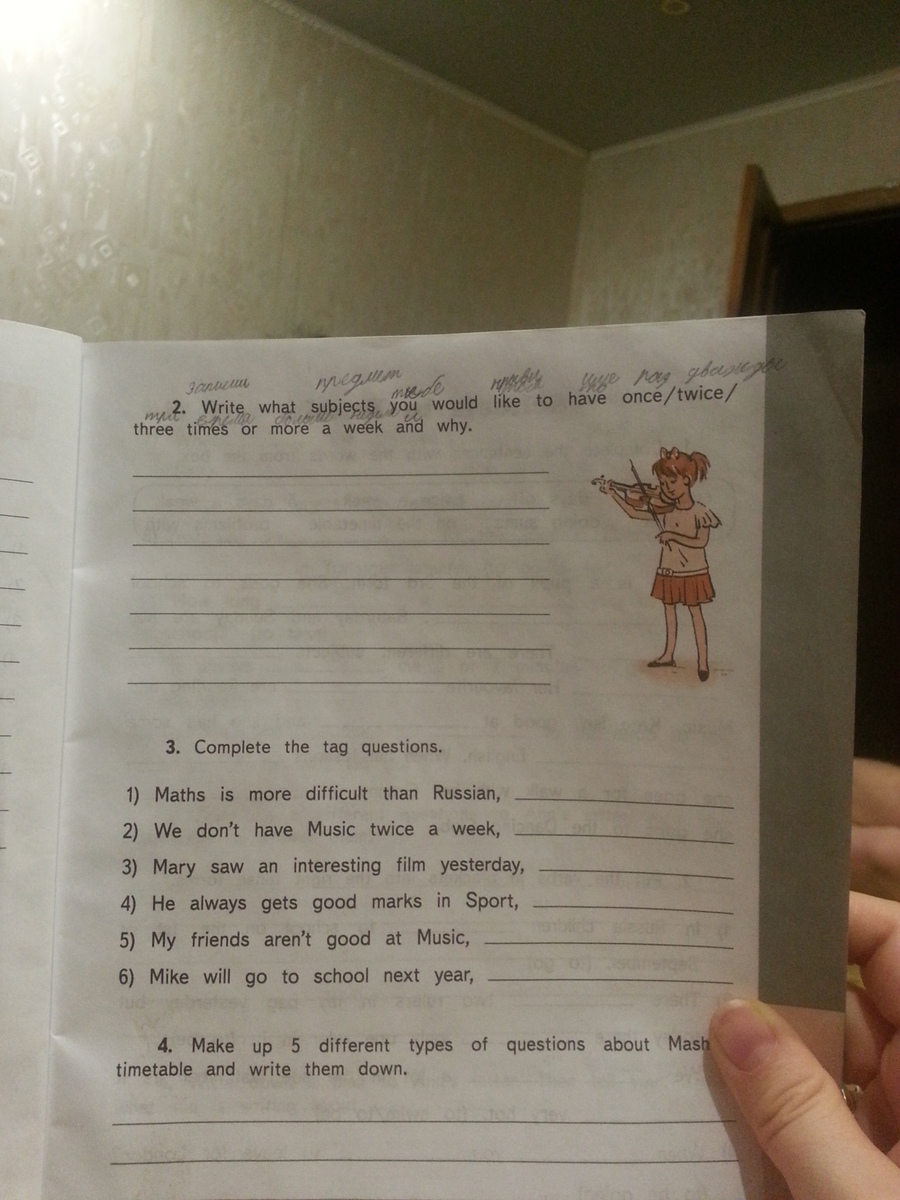 запиши предмет тебе
раз дважды
2. Write what subjects you would like to have once/twice/
три больше и
three times or more a week and why.
3. Complete the tag questions.
1) Maths is more difficult than Russian,
2) We don't have Music twice a week,
3) Mary saw an interesting film yesterday,
4) He always gets good marks in Sport,
5) My friends aren't good at Music,
6) Mike will go to school next year,
4. Make up 5 different types of questions about Mash
timetable and write them down.